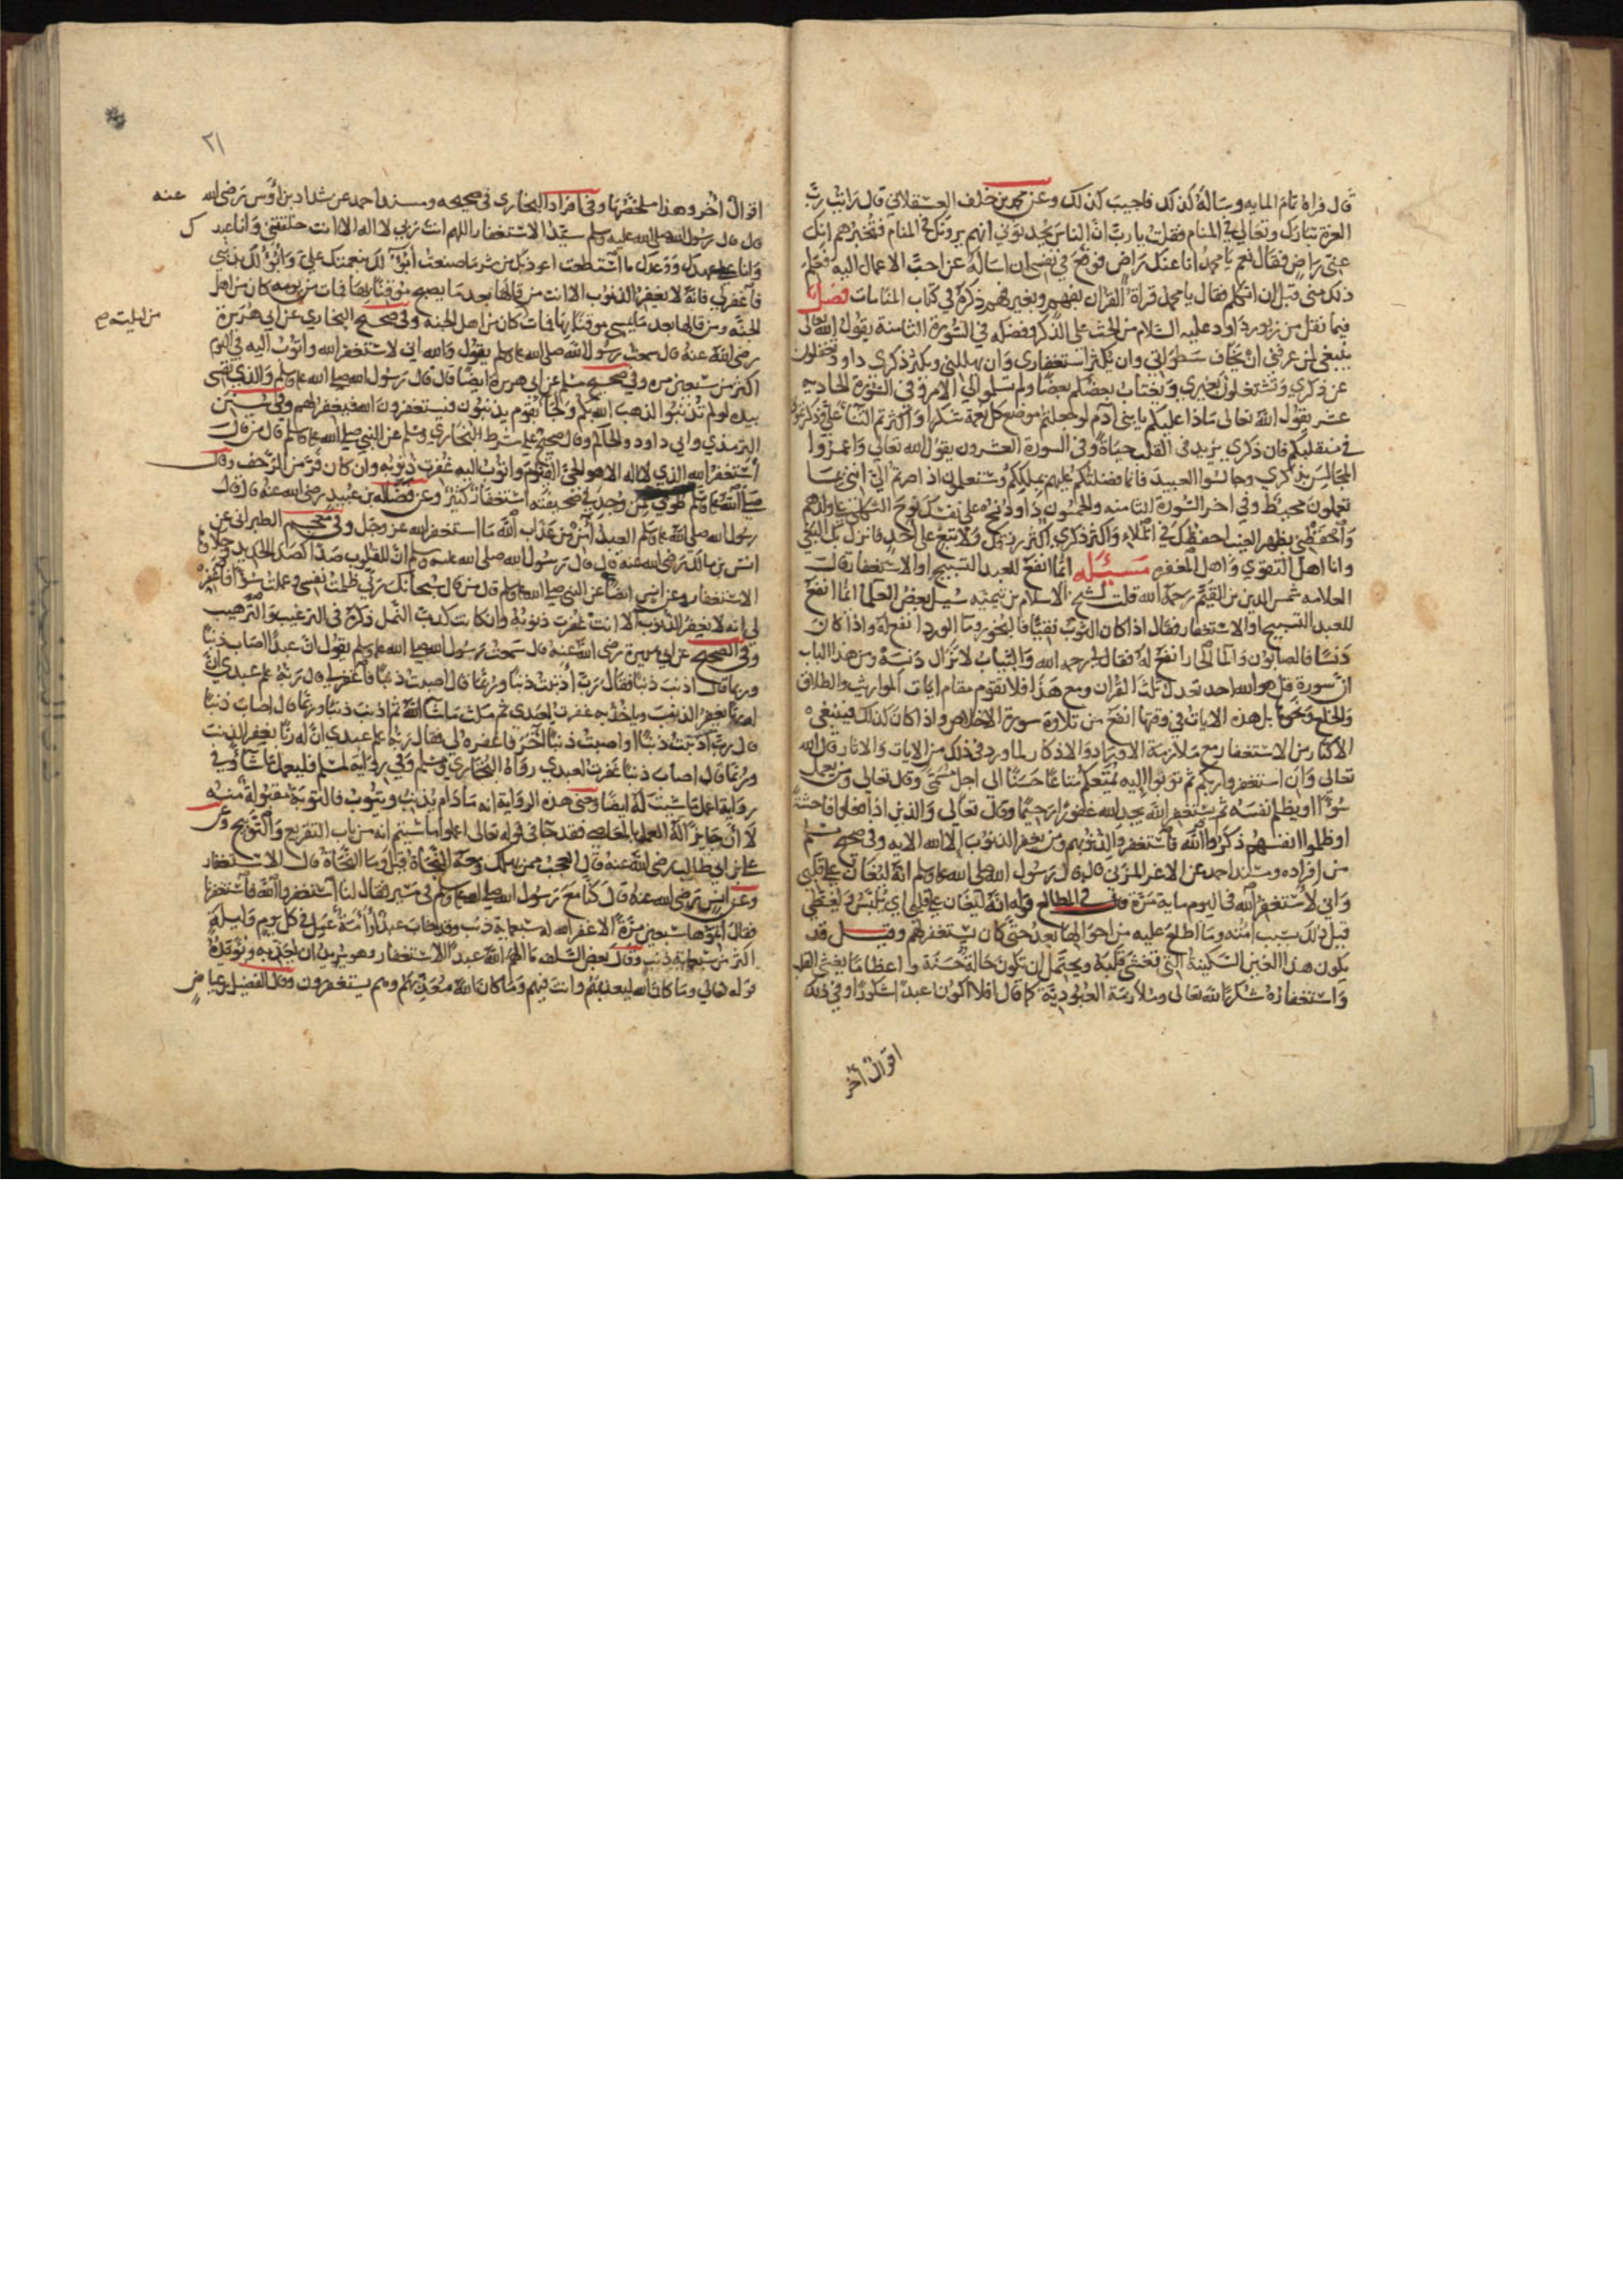 قال فراة تمام المايه وساله كذلك فاجيب كذلك وعن محمد بن خلف العسقلاني قال رايت رب
العزة تبارك وتعالي في المنام فقلت يا رب ان الناس يحدثوني انهم يرونك في المنام فتخبرهم انك
عني راض فقال نعم يا محمد انا عنك راض فوقع في نفسي ان اساله عن احب الاعمال اليه فعلم
ذلك مني قبل ان اتكلم فقال يا محمد قراة القران بفهم وبغير فهم ذكره في كتاب المنامات فصل
فيما نقل من زبور داود عليه السلام من الحث على الذكر وفضله في السورة الثامنة يقول الله تعالى
ينبغي لمن عرفني ان يخاف سطواتي وان يكثر استغفاري وان يهللني ويكثر ذكري داود تغفلون
عن ذكري وتشتغلون بغيري ويغتاب بعضكم بعضا ولم تسلموا الي الامر وفي السورة الحادية
عشر يقول الله تعالى ماذا عليكم يا بني ادم لو جعلتم موضع كل نعمة شكرا واكثرتم الثنا علي وذكرتموني
في منقلبكم فان ذكري يزيد في القلب حياة وفي السورة العشرون يقول الله تعالي واعمروا
المجالس بذكري وجالسوا العبيد فانما فضلتكم عليهم بملككم وستعلمون اذا صرتم الي انني بما
تعملون محيط وفي اخر السورة الثامنه والخمسون داود نح على نفسك نوح الثكلى على ولدهم
واحفظني بظهر الغيب احفظك في الملاء واكثر ذكري اكثر رزقك ولا تبغ على احد فانزل بك البغي
وانا اهل التقوي واهل المغفره مسئله ايما انفع للعبد التسبيح او الاستغفار قالت
العلامه شمس الدين بن القيم رحمه الله قلت لشيخ الاسلام بن تيميه سيل بعض العلما ايما انفع
للعبد التسبيح او الاستغفار فقال اذا كان الثوب نقيا فالبخور وما الورد انفع له واذا كان
دنسا فالصابون والما الحار انفع له فقال لي رحمه الله والثياب لا تزال دنسة ومن هذا الباب
ان سورة قل هو الله احد تعدل ثلث القران ومع هذا فلا تقوم مقام ايات المواريث والطلاق
والخلع ونحوها بل هذه الايات في وقتها انفع من تلاوة سورة الاخلاص واذا كان كذلك فينبغي
الاكثار من الاستغفار مع ملازمة الاوراد والاذكار لما ورد في ذلك من الايات والاثار قال الله
تعالى وان استغفروا ربكم ثم توبوا اليه يمتعكم متاعا حسنا الى اجل مسمى وقال تعالى ومن يعمل
سوءا او يظلم نفسه ثم يستغفر الله يجد الله غفورا رحيما وقال تعالى والذين اذا فعلوا فاحشة
او ظلموا انفسهم ذكروا الله فاستغفروا لذنوبهم ومن يغفر الذنوب الا الله الايه وفي صحيح مسلم
من افراده ومسند احمد عن الاغر المزني قال قال رسول الله صلى الله عليه وسلم انه ليغان على قلبي
واني لاستغفر الله في اليوم ماية مرة وفي المطالع قوله انه ليغان على قلبي اي يلبس ويغطي
قيل ذلك بسبب امته وما اطلع عليه من احوالها بعد حتى كان يستغفر لهم وقيل قد
يكون هذا الغين السكينة التي تغشى قلبه ويحتمل ان تكون حالة حسنة واعظاما يغشى القلب
واستغفاره شكرا لله تعالى وملازمة العبودية كما قال افلا اكون عبدا شكورا وفي ذلك
اقوال اخر
٢١
اقوال اخر وهذا ملخصها وفي افراد البخاري في صحيحه ومسند احمد عن شداد بن اوس رضي الله عنه
قال قال رسول الله صلى الله عليه وسلم سيد الاستغفار اللهم انت ربي لا اله الا انت خلقتني وانا عبدك
وانا على عهدك ووعدك ما استطعت اعوذ بك من شر ما صنعت ابو لك بنعمتك علي وابو لك بذنبي
فاغفر لي فانه لا يغفر الذنوب الا انت من قالها بعد ما يصبح موقنا بها فمات من يومه كان من اهل
الجنه ومن قالها بعد ما يمسي موقنا بها فمات كان من اهل الجنه وفي صحيح البخاري عن ابي هريرة
من ليلته صح
رضي الله عنه قال سمعت رسول الله صلى الله عليه وسلم يقول والله اني لاستغفر الله واتوب اليه في اليوم
اكثر من سبعين مره وفي صحيح مسلم عن ابي هريرة ايضا قال قال رسول الله صلى الله عليه وسلم والذي نفسي
بيده لو لم تذنبوا لذهب الله بكم ولجا بقوم يذنبون فيستغفرون الله فيغفر لهم وفي سنن
الترمذي وابي داود والحاكم وقال صحيح على شرط البخاري ومسلم عن النبي صلى الله عليه وسلم قال من قال
استغفر الله الذي لا اله الا هو الحي القيوم واتوب اليه غفرت ذنوبه وان كان فر من الزحف وقال
صلى الله عليه وسلم طوبي لمن وجد في صحيفته استغفارا كثيرا وعن فضاله بن عبيد رضي الله عنه قال قال
رسول الله صلى الله عليه وسلم العبد امن من عذاب الله ما استغفر الله عز وجل وفي معجم الطبراني عن
انس بن مالك رضي الله عنه قال قال رسول الله صلى الله عليه وسلم ان للقلوب صدا كصدا الحديد وجلاؤها
الاستغفار وعن انس ايضا عن النبي صلى الله عليه وسلم قال من قال سبحانك ربي ظلمت نفسي وعملت سوءا فاغفر
لي انه لا يغفر الذنوب الا انت غفرت ذنوبه وان كانت كدب النمل ذكره في الترغيب والترهيب
وفي الصحيح عن ابي هريرة رضي الله عنه قال سمعت رسول الله صلى الله عليه وسلم يقول ان عبدا اصاب ذنبا
وربما قال اذنب ذنبا فقال رب اذنبت ذنبا وربما قال اصبت ذنبا فاغفر لي قال ربه علم عبدي ان
له ربا يغفر الذنب وياخذ به غفرت لعبدي ثم مكث ما شا الله ثم اذنب ذنبا وربما قال اصاب ذنبا
قال رب اذنبت ذنبا او اصبت ذنبا اخر فاغفره لي فقال ربه علم عبدي ان له ربا يغفر الذنب
وربما قال اصاب ذنبا غفرت لعبدي رواه البخاري ومسلم وفي رواية لمسلم فليعمل ما شا وفي
رواية اعمل ما شيت له ايضا ومعنى هذه الرواية انه ما دام يذنب ويتوب فالتوبة مقبولة منه
لا انه جايز له العمل بالمعاصي فقد جا في قوله تعالى اعملوا ما شيتم انه من باب التقريع والتوبيخ وعن
علي بن ابي طالب رضي الله عنه قال العجب ممن يهلك ومعه النجاة قيل وما النجاة قال الاستغفار
وعن انس رضي الله عنه قال كنا مع رسول الله صلى الله عليه وسلم في مسير فقال لنا استغفروا الله فاستغفرنا
فقال اتموها سبعين مرة الا غفر الله له سبعماية ذنب وقد خاب عبد او امة عمل في كل يوم وليلة
اكثر من سبعماية ذنب وقال بعض السلف ما الهم الله عبدا الاستغفار وهو يريد ان يعذبه
قوله تعالي وما كان الله ليعذبهم وانت فيهم وما كان الله معذبهم وهم يستغفرون وقال الفضيل بن عياض